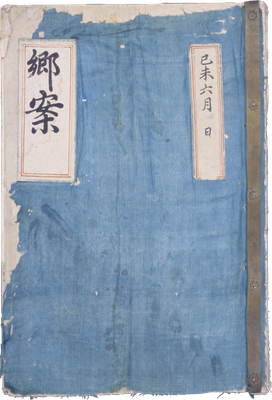 己未六月 日
鄉案